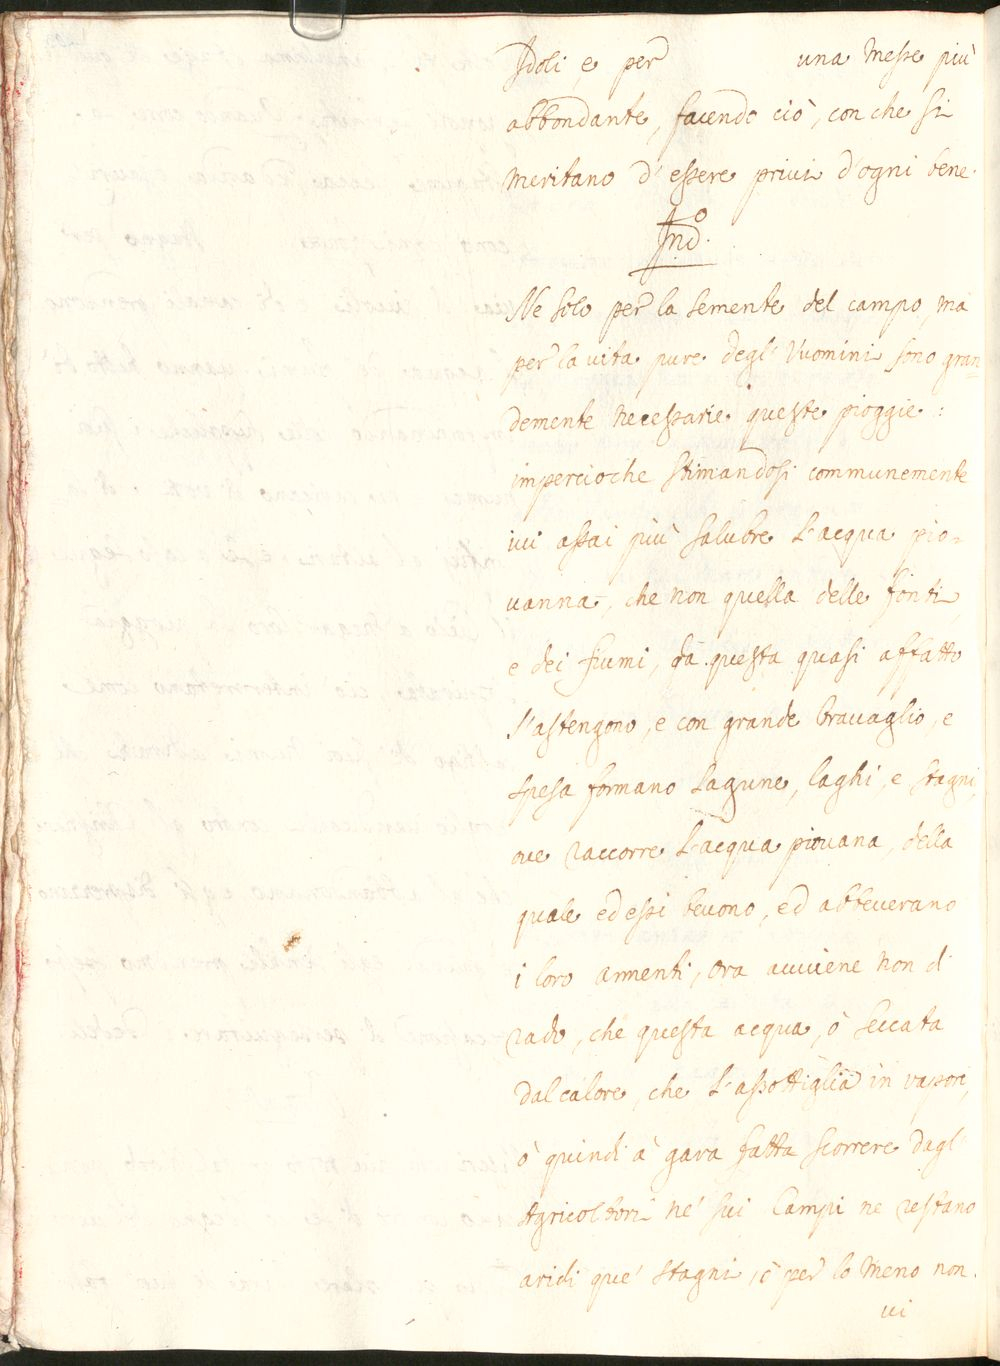 Idoli, e per una Messe più
abbondante, facendo ciò, con che si
meritano d'essere privi d'ogni bene.
Ind.o
Ne solo per la semente del campo, ma
per la vita pure degl' Vuomini sono gran=
demente necessarie queste pioggie:
impercioche stimandosi communemente
ivi assai più salubre l'acqua pio=
vanna, che non quella delle fonti,
e dei fiumi, da questa quasi affatto
s'astengono, e con grande travaglio, e
spesa formano lagune, laghi, e stagni,
ove raccorre l'acqua piovana, della
quale ed essi bevono, ed abbeverano
i loro armenti, ora avviene non di
rado, che questa acqua, ò seccata
dal calore, che l'assottiglia in vapori,
ò quindi à gara fatta scorrere dagl'
Agricoltori ne' sui Campi ne restano
aridi que' stagni, ò per lo meno non.
vi